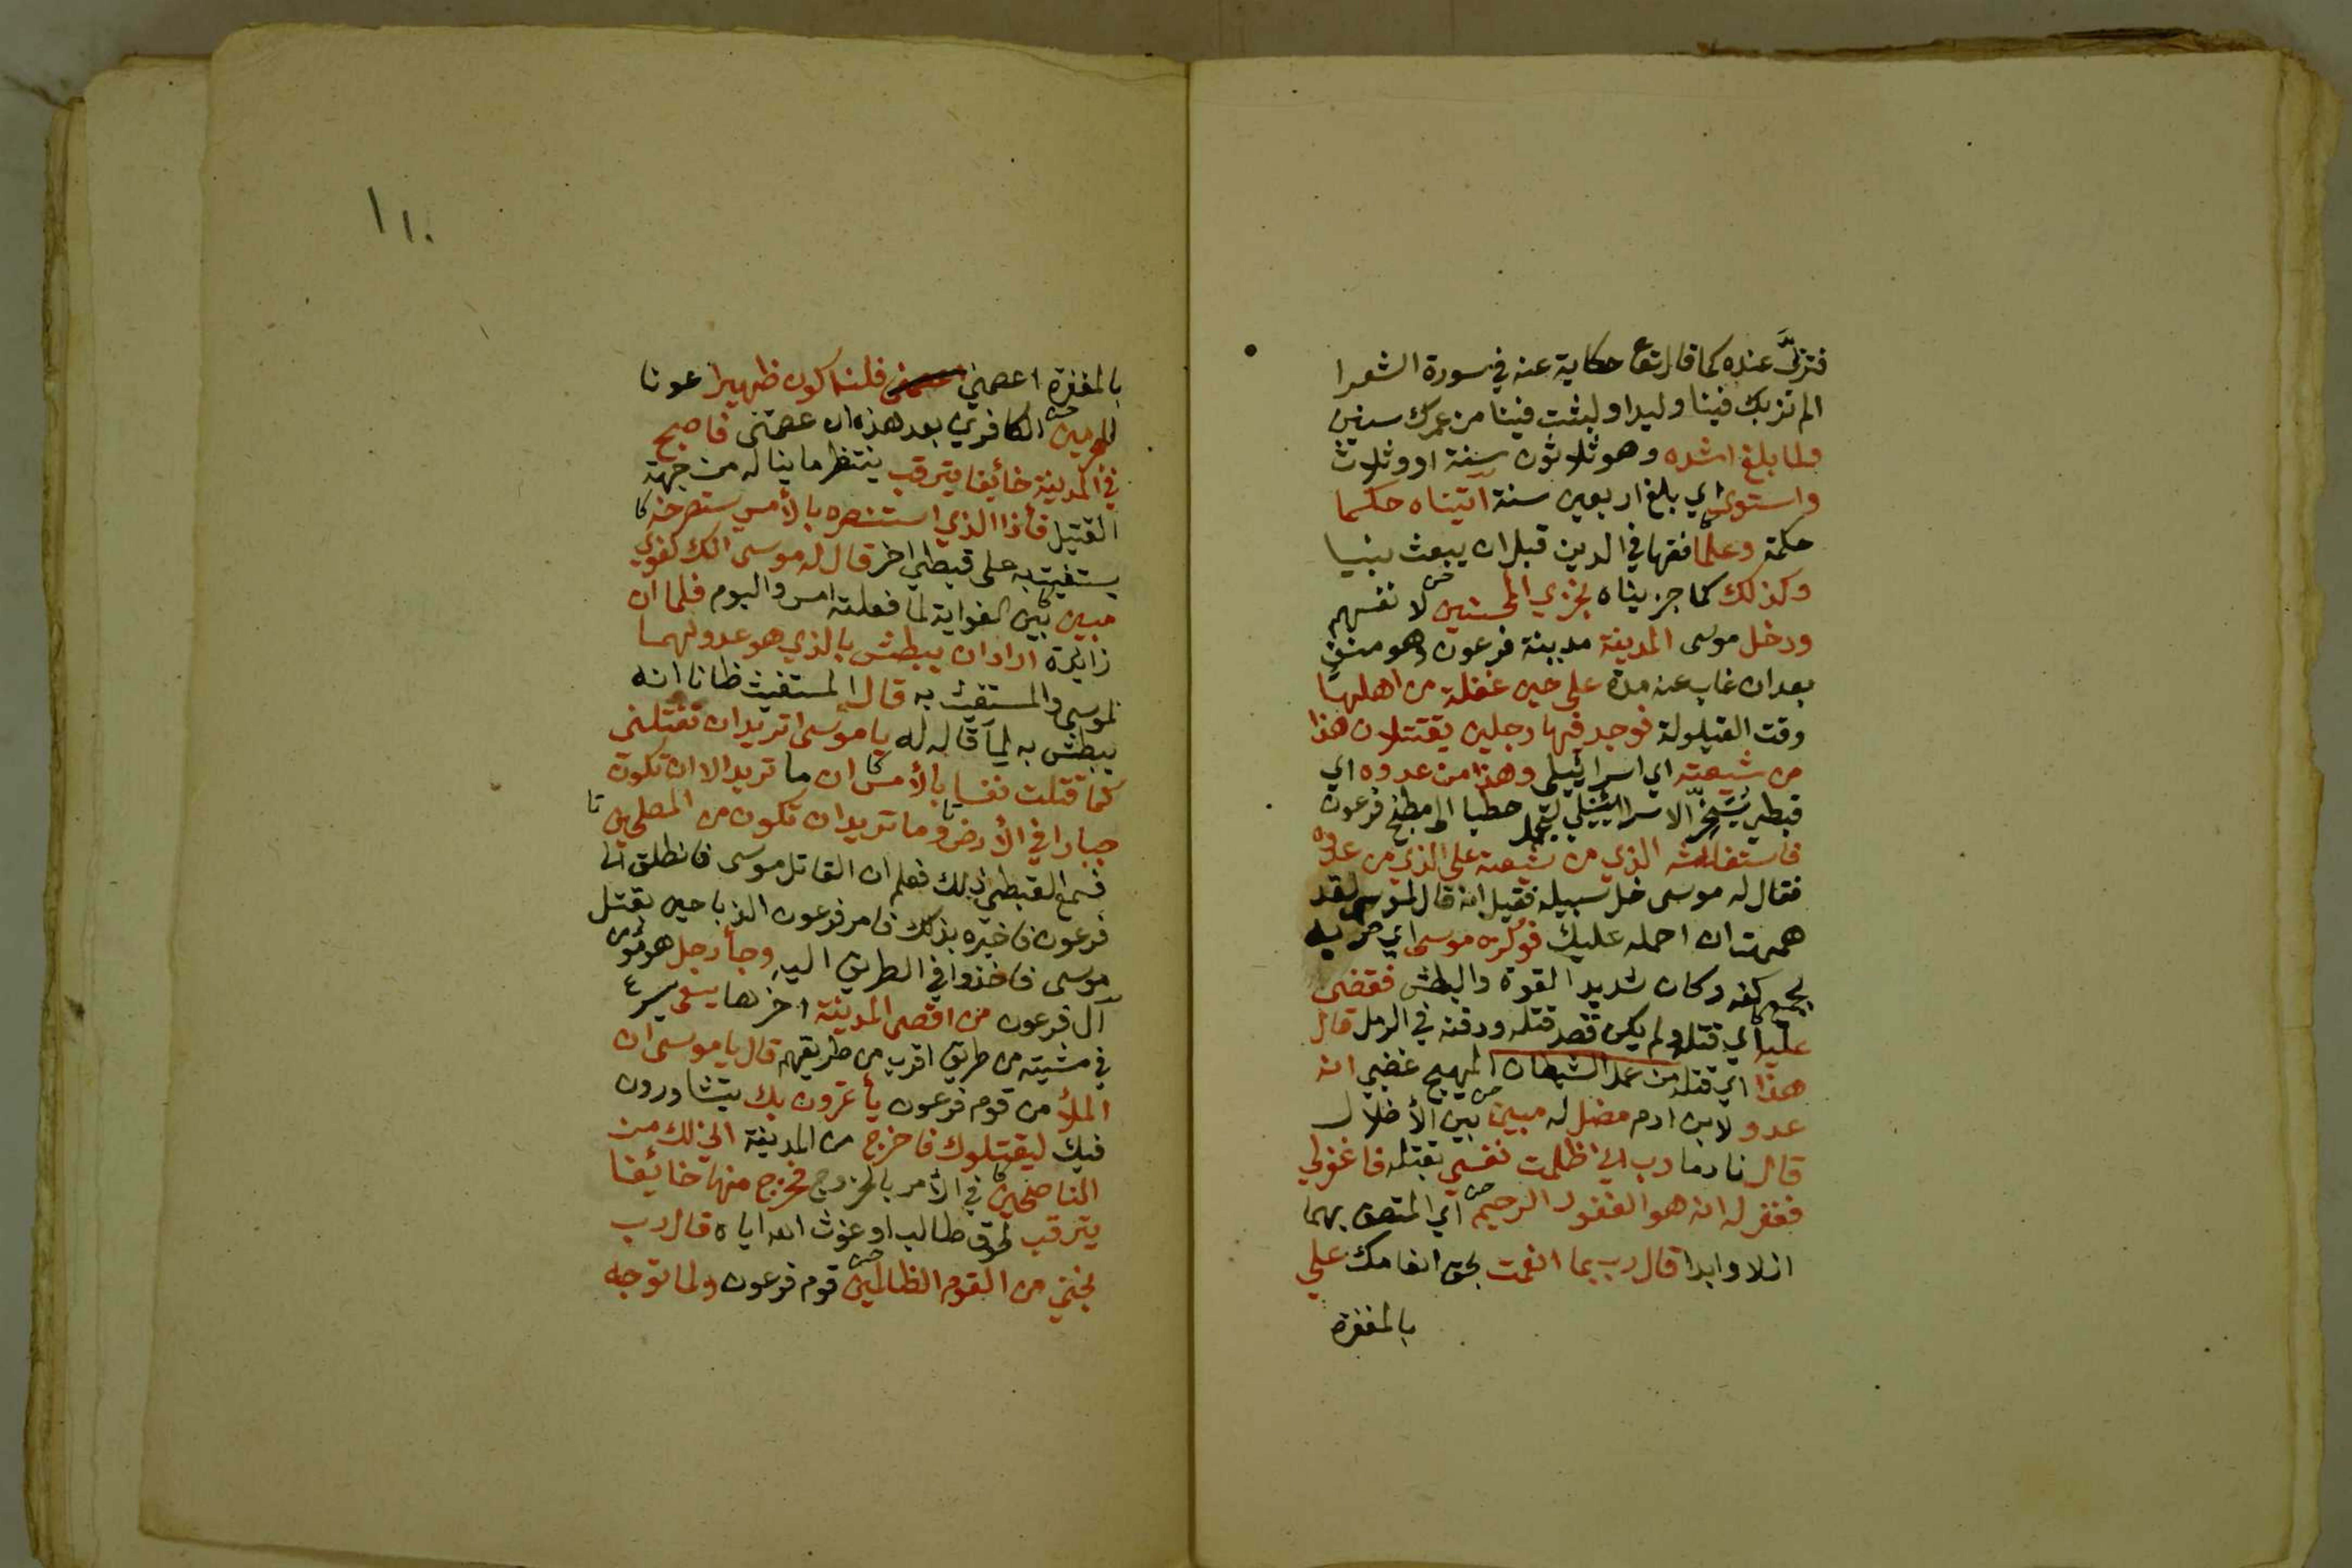 فتربَّى عنده كما قال تع حكاية عنه في سورة الشعرا
الم نربك فينا وليدا ولبثت فينا من عمرك سنين
ولما بلغ اشده وهو ثلاثون سنة او وثلاث
واستوى اي بلغ اربعين سنة آتيناه حكما
حكمة وعلما فقها في الدين قبل ان يبعث نبيا
وكذلك كما جزيناه نجزي المحسنين لا نفسهم
ودخل موسى المدينة مدينة فرعون وهو منف
بعد ان غاب عنه مدة على حين غفلة من اهلها
وقت القيلولة فوجد فيها رجلين يقتتلان هذا
من شيعته اي اسرائيلي وهذا من عدوه اي
قبطي يسخّر الاسرائيلي ليحمل حطبا الى مطبخ فرعون
فاستغاثه الذي من شيعته على الذي من عدوه
فقال له موسى خل سبيله فقيل انه قال لموسى لقد
هممت ان احمله عليك فوكزه موسى اي ضربه
بجمع كفه وكان شديد القوة والبطش فقضى
عليه اي قتله ولم يكن قصد قتله ودفنه في الرمل قال
هذا اي قتله من عمل الشيطان المهيج غضبي انه
عدو لابن ادم مضل له مبين بين الأضلال
قال نادما رب اني ظلمت نفسي بقتله فاغفرلي
فغفر له انه هو الغفور الرحيم اي المتصف بهما
ازلا وابدا قال رب بما انعمت بحق انعامك علي
بالمغفرة
١١٠
بالمغفرة اعصمني فلن اكون ظهيرا عونا
للمجرمين الكافرين بعد هذه ان عصمتني فاصبح
في المدينة خائفا يترقب ينتظر ما يناله من جهة
القتيل فأذا الذي استنصره بالأمس يستصرخه
يستغيث به على قبطي اخر قال له موسى انك لغوي
مبين بين الغواية لما فعلته امس واليوم فلما ان
زايدة اراد ان يبطش بالذي هو عدو لهما
لموسى والمستغيث به قال المستغيث ظانا انه
يبطش به لما قال له يا موسى اتريد ان تقتلني
كما قتلت نفسا بالأمس ان ما تريد الا ان تكون
جبارا في الأرض وما تريد ان تكون من المصلحين
فسمع القبطي ذلك فعلم ان القاتل موسى فانطلق الى
فرعون فاخبره بذلك فامر فرعون الذباحين بقتل
موسى فاخذوا في الطريق اليه وجأ رجل هو مؤمن
آل فرعون من اقصى المدينة اخرها يسعى يسرع
في مشيته من طريق اقرب من طريقهم قال يا موسى ان
الملأ من قوم فرعون يأتمرون بك يتشاورون
فيك ليقتلوك فاخرج من المدينة اني لك من
الناصحين في الأمر بالخروج فخرج منها خائفا
يترقب لحوق طالب او غوث الله اياه قال رب
نجني من القوم الظالمين قوم فرعون ولما توجه